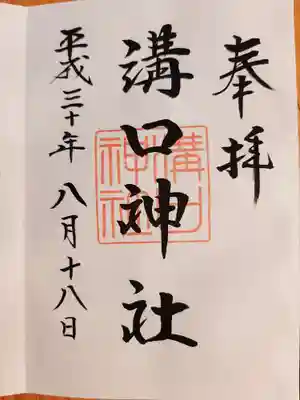 奉拝
溝口神社
溝口
神社
平成三十年八月十八日